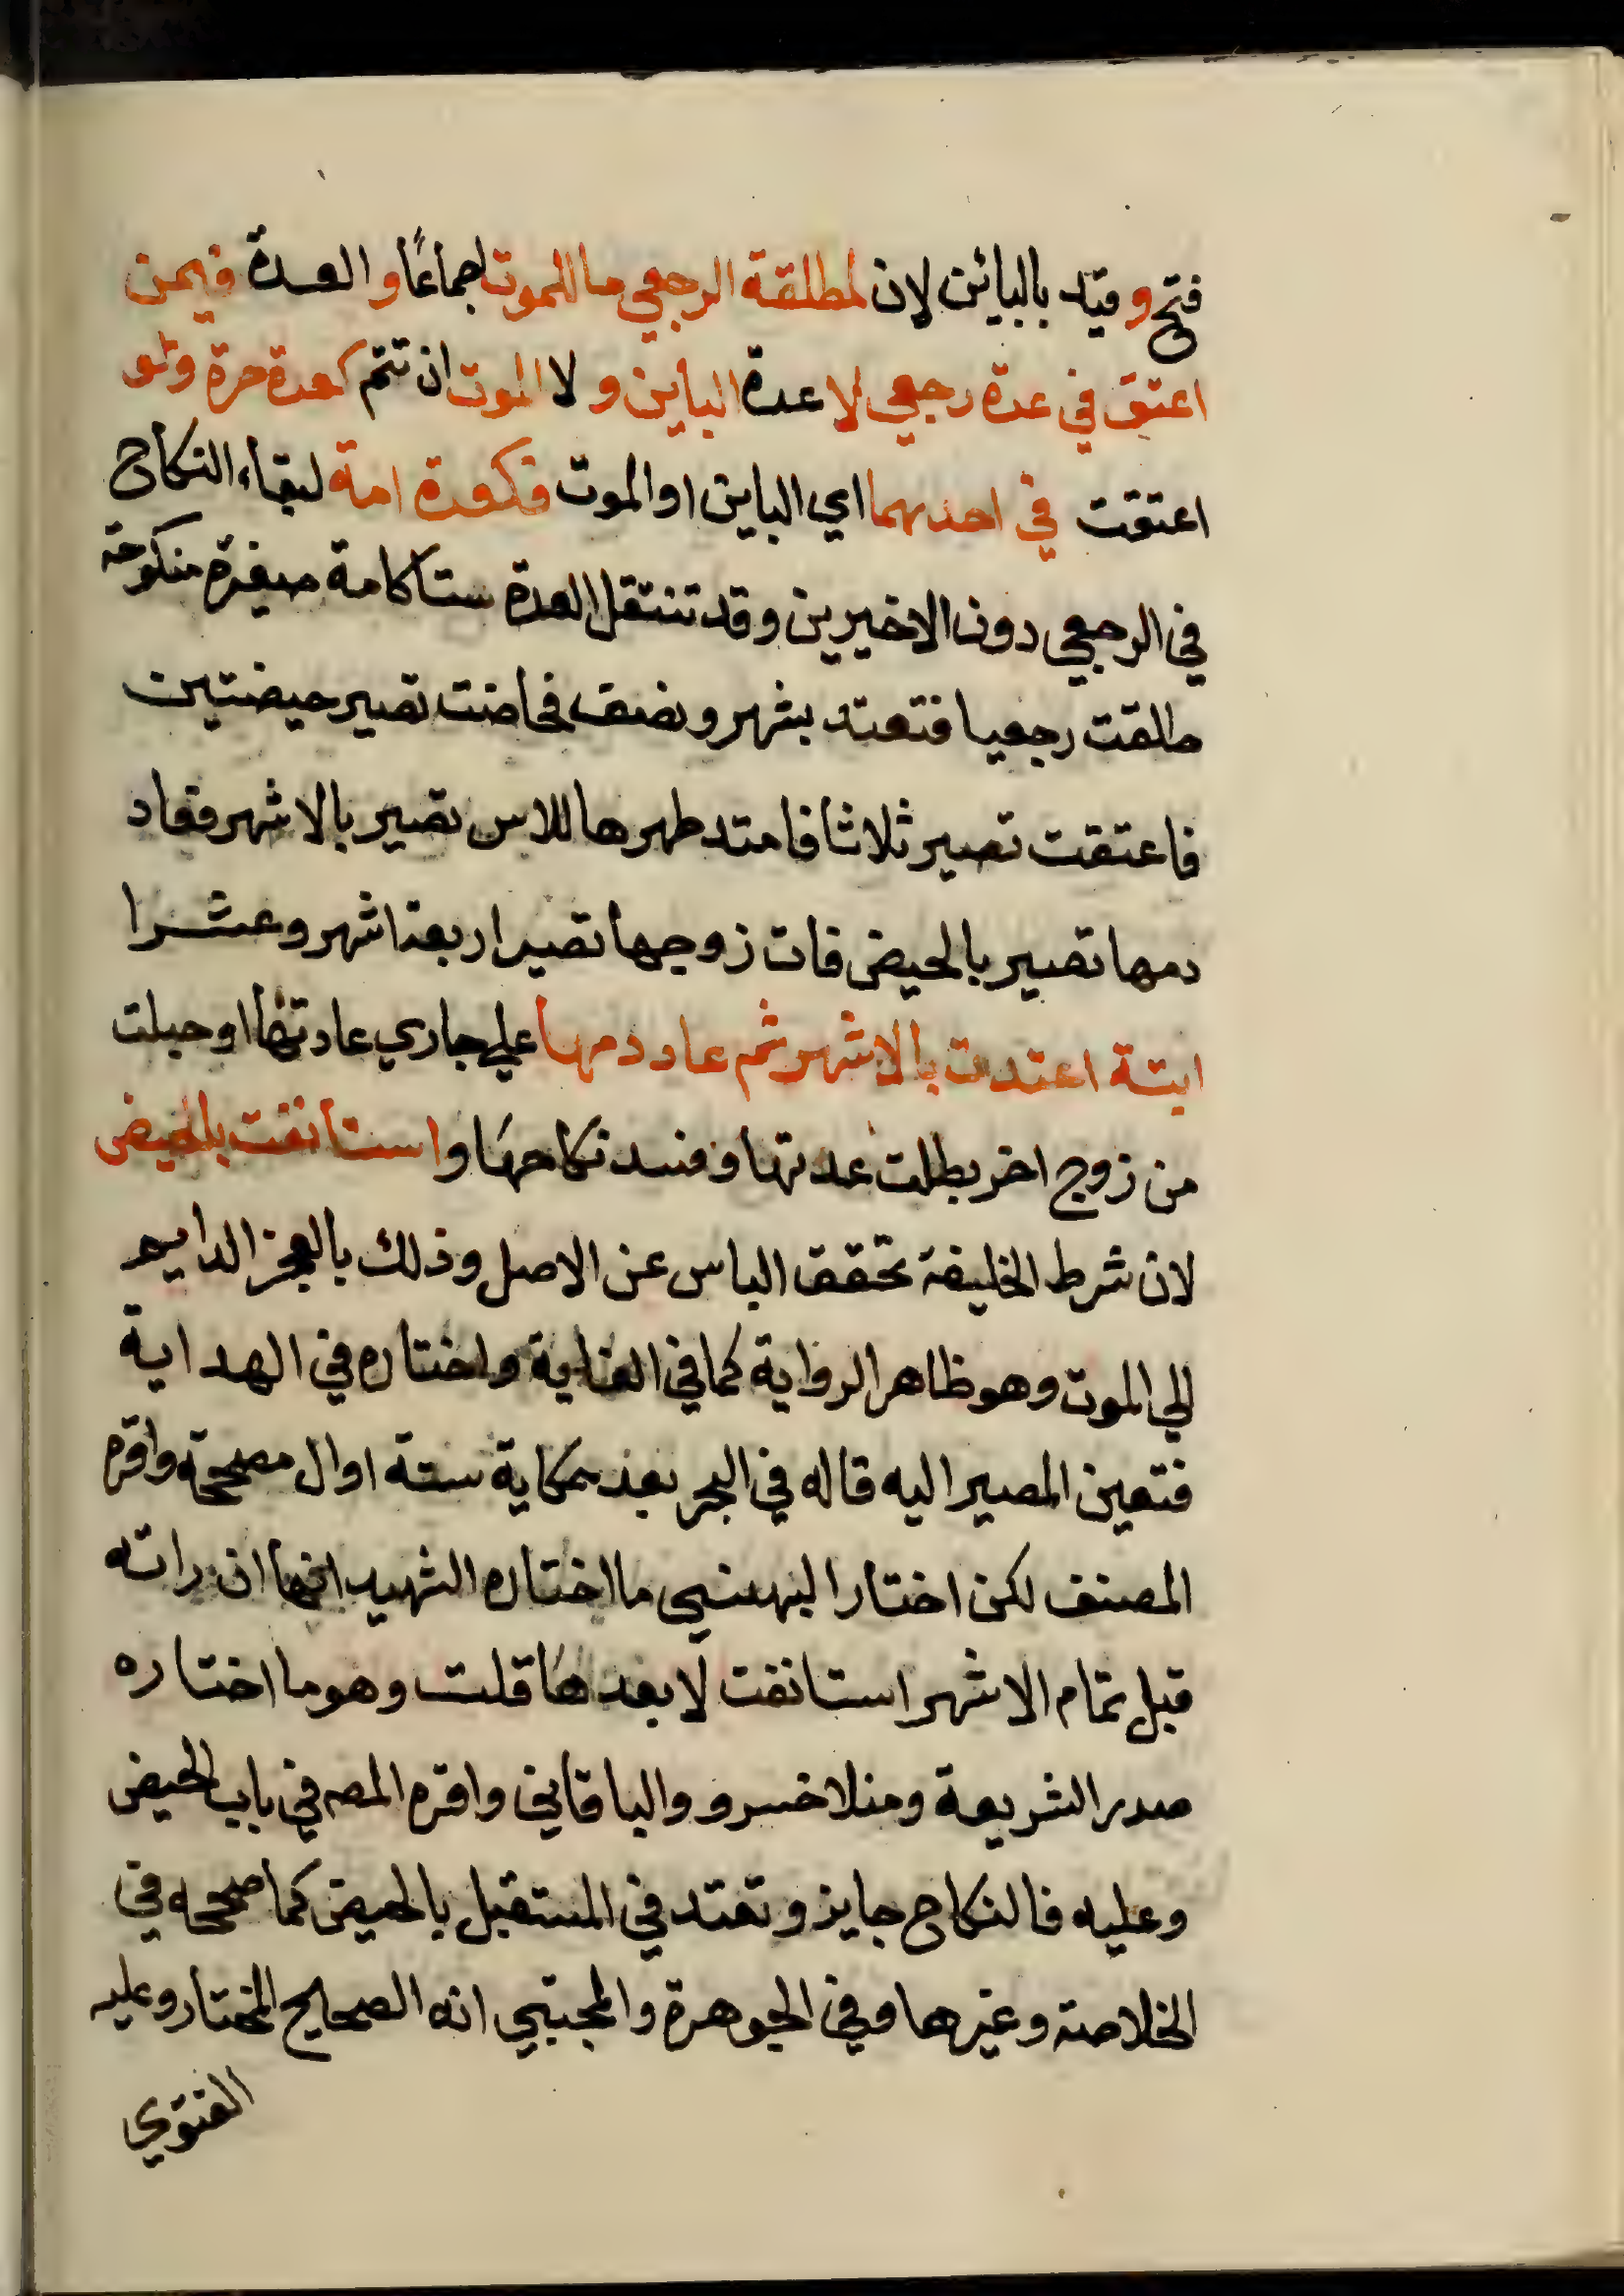 فتح وقيد بالبائن لان لمطلقة الرجعي ما للموت اجماعًا والعدة فيمن
اعتق في عدة رجعي لا عدة الباين ولا الموت ان تتم كعدة حرة ولو
اعتقت في احدهما اي الباين او الموت فكعدة امة لبقاء النكاح
في الرجعي دون الاخيرين وقد تنتقل العدة ستا كامة صغيرة منكوحة
طلقت رجعيا فتعتد بشهر ونصف فحاضت تصير حيضتين
فاعتقت تصير ثلاثا فامتد طهرها للاس تصير بالاشهر فعاد
دمها تصير بالحيض فات زوجها تصير اربعة اشهر وعشرا
ايتة اعتدت بالاشهر ثم عاد دمها علي جاري عادتها او حبلت
من زوج اخر بطلت عدتها وفسد نكاحها واستانفت بالحيض
لان شرط الخليفة تحقق الياس عن الاصل وذلك بالعجز الدايم
الي الموت وهو ظاهر الرواية كما في الغاية واختاره في الهداية
فتعين المصير اليه قاله في البحر بعد حكاية ستة اوال مصححة واقره
المصنف لكن اختار البهنسي ما اختاره الشهيد انها ان راته
قبل تمام الاشهر استانفت لا بعدها قلت وهو ما اختاره
صدر الشريعة ومنلا خسرو والباقاني واقره المصه في باب الحيض
وعليه فالنكاح جايز وتعتد في المستقبل بالحيض كما صححه في
الخلاصة وغيرها وفي الجوهرة والمجتبي انه الصحيح المختار وعليه
الفتوي